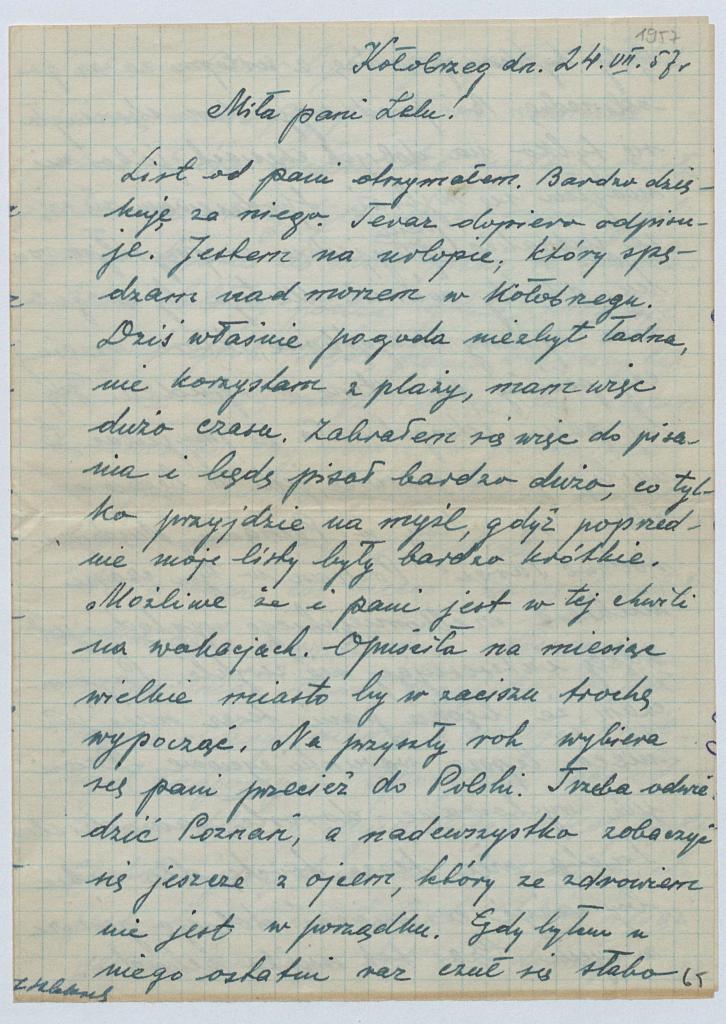 1957
Kołobrzeg dn. 24.VII.57r
Miła pani Lelu!
List od pani otrzymałem. Bardzo dzię-
kuję za niego. Teraz dopiero odpisu-
je. Jestem na urlopie, który spę-
dzam nad morzem w Kołobrzegu.
Dziś właśnie pogoda niezbyt ładna,
nie korzystam z plaży, mam więc
dużo czasu. Zabrałem się więc do pisa-
nia i będę pisał bardzo dużo, co tyl-
ko przyjdzie na myśl, gdyż poprzed-
nie moje listy były bardzo krótkie.
Możliwe że i pani jest w tej chwili
na wakacjach. Opuściła na miesiąc
wielkie miasto by w zaciszu trochę
wypocząć. Na przyszły rok wybiera
się pani przecież do Polski. Trzeba odwie-
dzić Poznań, a nadewszystko zobaczyć
się jeszcze z ojcem, który ze zdrowiem
nie jest w porządku. Gdy byłem u
niego ostatni raz czuł się słabo
65